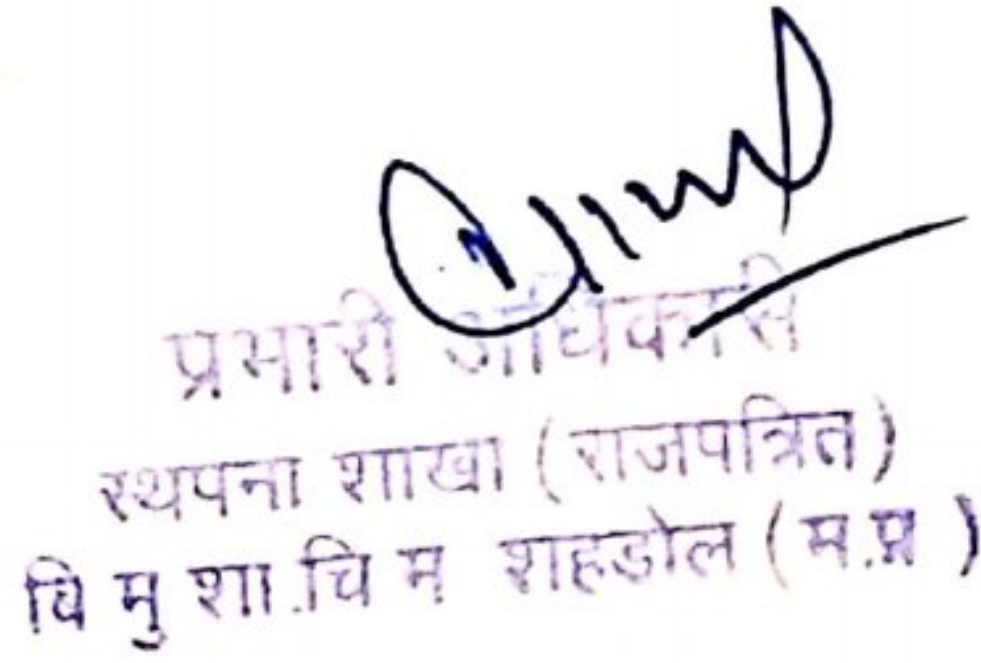 प्रभारी अधिकारी
स्थपना शाखा (राजपत्रित)
वि मु शा.चि म शहडोल (म.प्र )